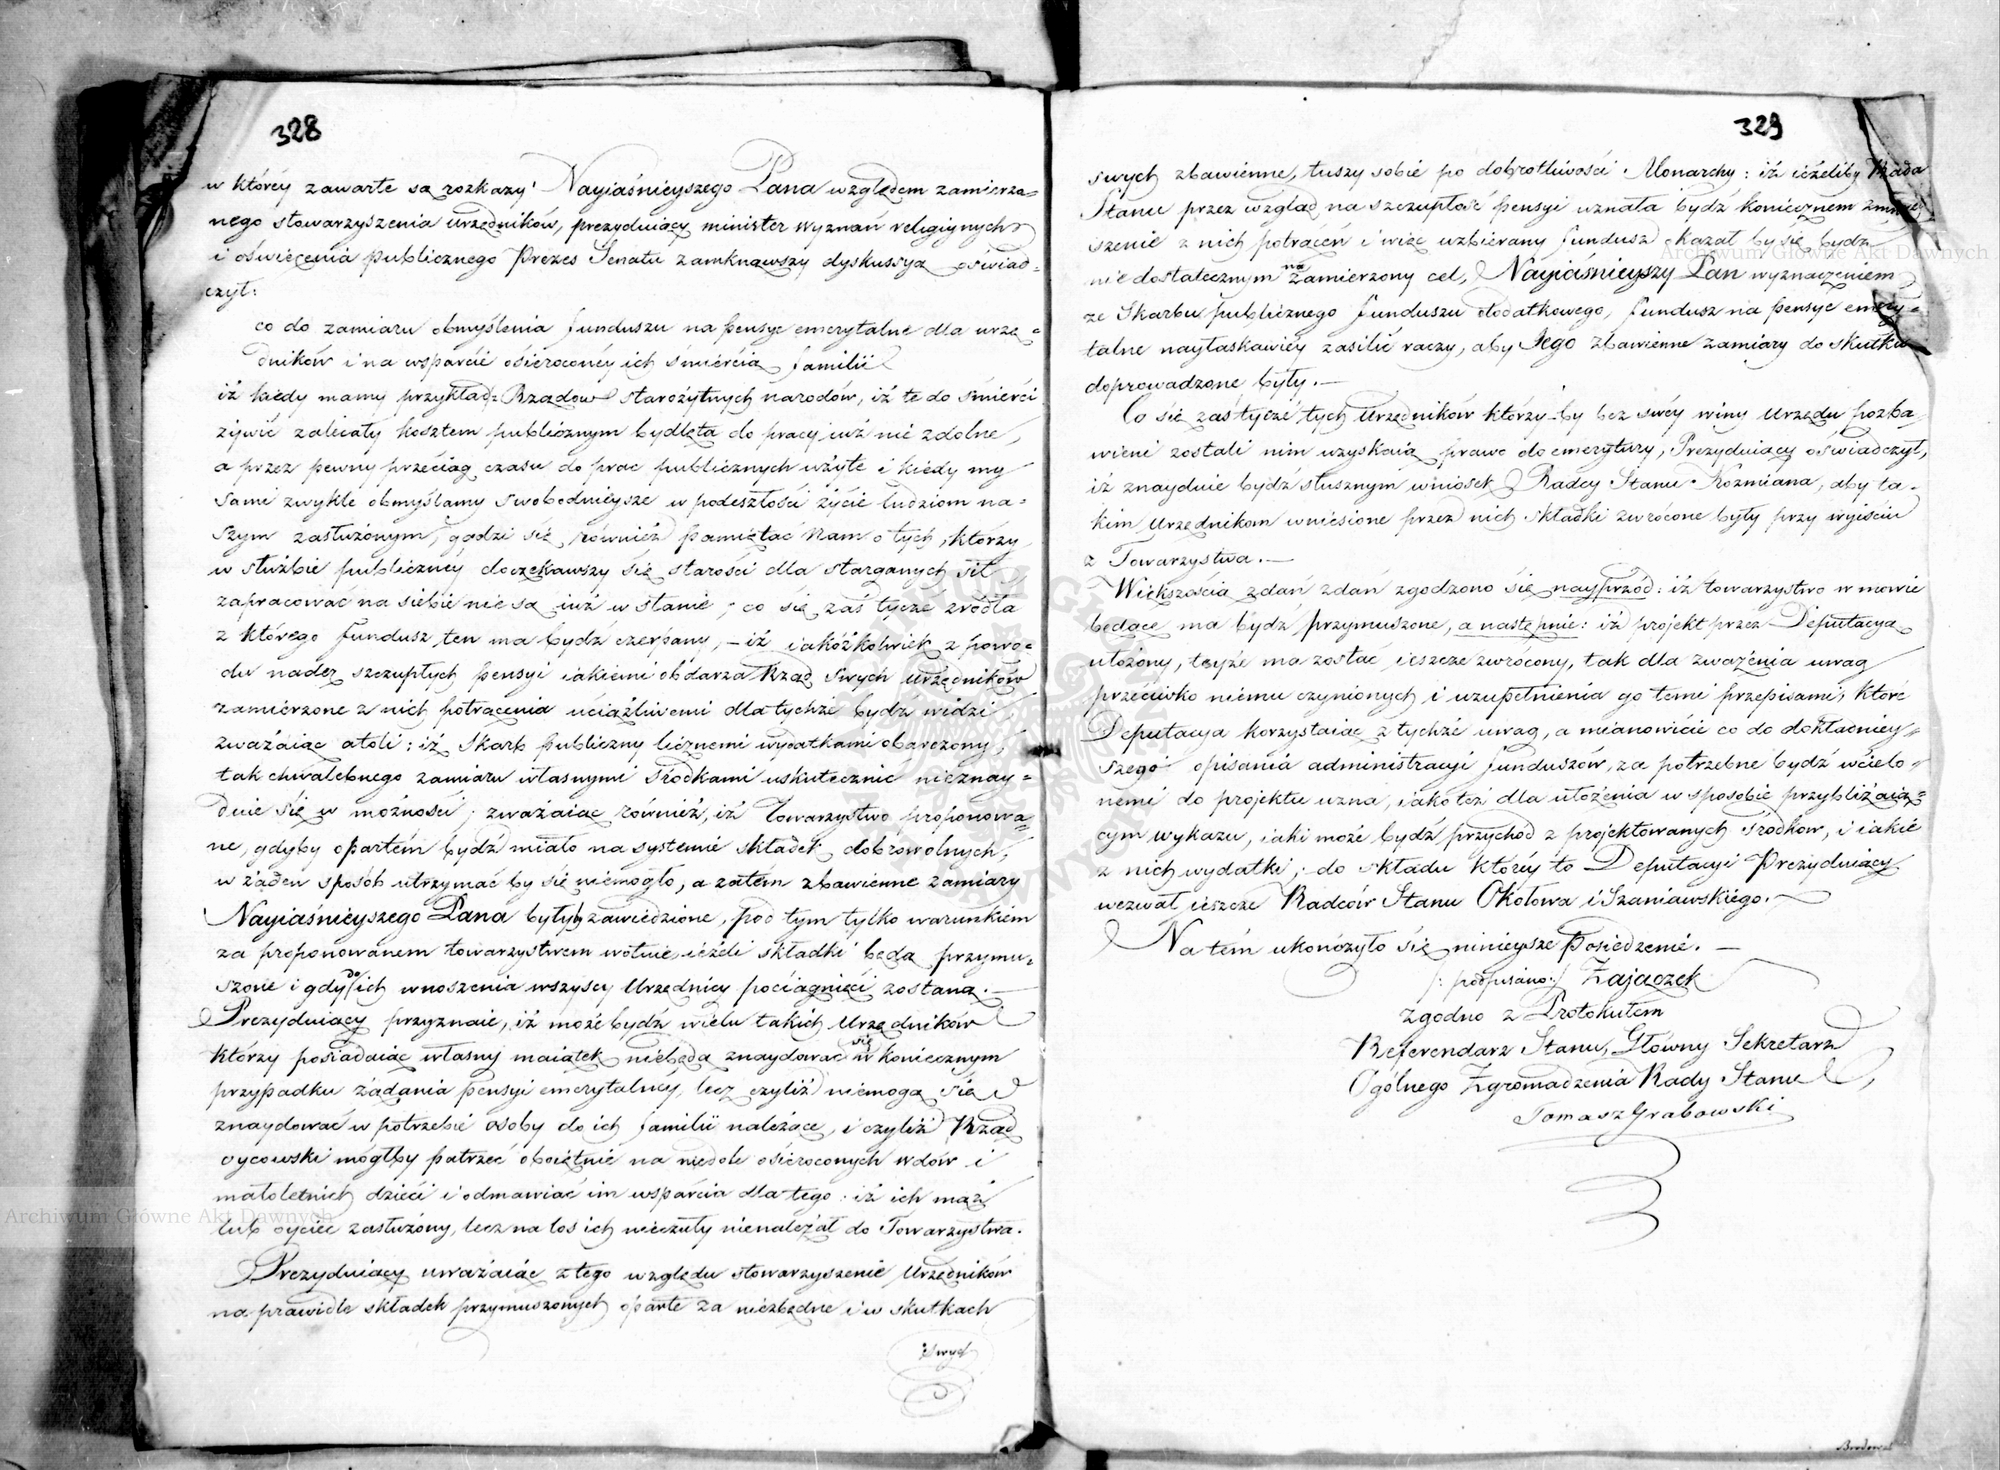 328
w którey zawarte są rozkazy Nayiaśnieyszego Pana względem zamierza=
nego stowarzyszenia urzędników, prezyduiący minister wyznań religiynych
i oświecenia publicznego Prezes Senatu zamknąwszy dyskussyą oświad=
czył:
co do zamiaru obmyślenia funduszu na pensye emerytalne dla urzę=
dników i na wsparcie osieroconéy ich śmiercią familii
iż kiedy mamy przykład: Rządów starożytnych narodów, iż te do śmierci
żywić zalecały kosztem publicznym bydlęta do pracy iuż nie zdolne,
a przez pewny przeciąg czasu do prac publicznych użyte i kiedy my
sami zwykle obmyślamy swobodnieysze w podeszłości życie ludziom na=
szym zasłużonym, godzi się również pamiętać nam o tych, którzy
w służbie publicznéy doczekawszy się starości dla starganych sił
zapracować na siebie nie są iuż w stanie; co się zaś tycze źrodła
z którego fundusz ten ma bydź czerpany, – iż iakóżkolwiek z powo=
du nader szczupłych pensyi iakiemi obdarza Rząd swych urzędników
zamierzone z nich potrącenia uciążliwemi dla tychże bydź widzi
zważaiąc atoli: iż Skarb publiczny licznemi wydatkami obarczony,
tak chwalebnego zamiaru własnymi środkami uskutecznić nieznay=
duie się w możności; zważaiąc również, iż Towarzystwo proponowa=
ne, gdyby opartém bydź miało na systemie składek dobrowolnych,
w żaden sposób utrzymać by się niemogło, a zatem zbawienne zamiary
Nayiaśnieyszego Pana byłyby zawiedzione, pod tym tylko warunkiem
za proponowanem towarzystwem wotuie ieżeli składki będą przymu=
szone i gdy do ich wnoszenia wszyscy Urzędnicy pociągnięci zostaną. —
Prezyduiący przyznaie, iż może bydź wielu takich Urzędników
którzy posiadaiąc własny maiątek niebędą znaydować się w koniecznym
przypadku żądania pensyi emerytalney, lecz czyliż niemogą się
znaydować w potrzebie osoby do ich familii należące, i czyliż Rząd
oycowski mógłby patrzeć oboiętnie na niedole osieroconych wdów i
małoletnich dzieci i odmawiać im wsparcia dla tego: iż ich mąż
lub oyciec zasłużony, lecz na los ich nieczuły nienależał do Towarzystwa.
Prezyduiący uważaiąc z tego względu stowarzyszenie Urzędników
na prawidle składek przymuszonych oparte za niezbędne i w skutkach
swych
329
swych zbawienne, tuszy sobie po dobrotliwości Monarchy: iż ieżeliby Rada
Stanu przez wzgląd na szczupłość pensyi uznała bydź koniecznem zmniey
szenie z nich potrąceń i więc uzbierany fundusz okazał by się bydź
niedostatecznym na zamierzony cel, Nayiaśnieyszy Pan wyznaczeniem
ze Skarbu publicznego funduszu dodatkowego, fundusz na pensye emery=
talne nayłaskawiéy zasilić raczy, aby Jego zbawienne zamiary do skutku
doprowadzone były. —
Co się zaś tycze tych Urzędników którzy-by bez swéy winy Urzędu pozba=
wieni zostali nim uzyskaią prawo do emerytury, Prezyduiący oświadczył,
iż znayduie bydź słusznym wniosek Radcy Stanu Kozmiana, aby ta=
kim Urzędnikom wniesione przez nich składki zwrócone były przy wyiściu
z Towarzystwa. —
Większością zdań zdań zgodzono się nayprzód: iż towarzystwo w mowie
będące ma bydź przymuszone, a następnie: iż projekt przez Deputacyą
ułożony, teyże ma zostać ieszcze zwrócony, tak dla zważenia uwag
przeciwko niemu czynionych i uzupełnienia go temi przepisami, które
Deputacya korzystaiąc z tychże uwag, a mianowicie co do dokładniey=
szego opisania administracyi funduszów, za potrzebne bydź wcielo=
nemi do projektu uzna, iako też dla ułożenia w sposobie przybliżaią=
cym wykazu, iaki może bydź przychod z projektowanych środków, i iakie
z nich wydatki; do składu któréy to Deputacyi Prezyduiący
wezwał ieszcze Radców Stanu Okołowa i Szaniawskiégo. —
Na tém ukończyło się ninieysze Posiedzenie. —
/: podpisano :/ Zajączek
Zgodno z Protokułem
Referendarz Stanu, Główny Sekretarz
Ogólnego Zgromadzenia Rady Stanu
Tomasz Grabowski
Archiwum Główne Akt Dawnych
Archiwum Główne Akt Dawnych